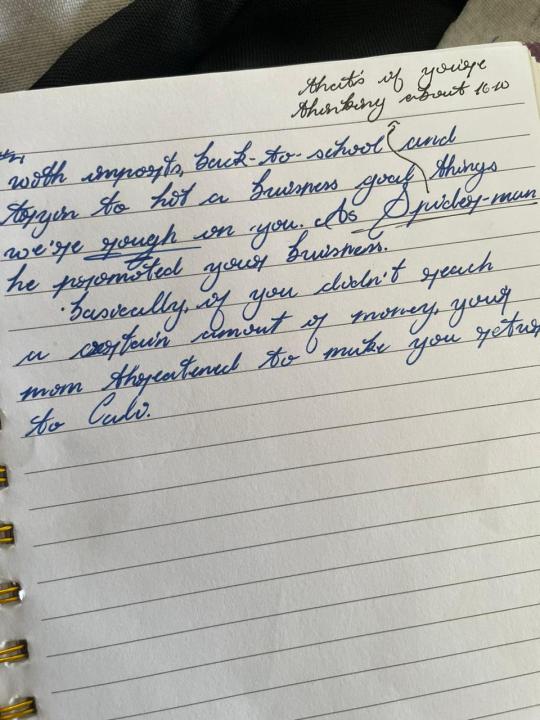 that's if you're
thinking about 1610
with imports, back-to-school and
tryin to hit a buisness goal, things
we're rough on you. As Spider-man
he promoted your buisness.
basically, if you didn't reach
a certain amount of money, your
mom threatened to make you
to Cali.